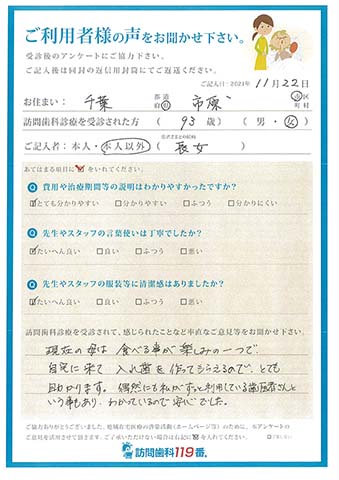 ご利用者様の声をお聞かせ下さい。
受診後のアンケートにご協力下さい。
ご記入後は同封の返信用封筒にてご返送ください。
ご記入日：2021年 11月 22日
お住まい： 千葉 都道府県 市原 市区町村
訪問歯科診療を受診された方 （ 93 歳） （ 男・女 ）
ご記入者：本人・本人以外（ 長女 ）
あてはまる項目に☑をいれてください。
Q 費用や治療期間等の説明はわかりやすかったですか？
☑とても分かりやすい □分かりやすい □ふつう □分かりにくい
Q 先生やスタッフの言葉使いは丁寧でしたか？
☑たいへん良い □良い □ふつう □悪い
Q 先生やスタッフの服装等に清潔感はありましたか？
☑たいへん良い □良い □ふつう □悪い
訪問歯科診療を受診されて、感じられたことなど率直なご意見等をお聞かせ下さい。
現在の母は 食べる事が楽しみの一つで、
自宅に来て 入れ歯を作ってもらえるので、とても
助かります。偶然にも私がずっと利用している歯医者さんと
いう事もあり、わかっているので安心でした。
ご協力ありがとうございました。地域在宅医療の啓蒙活動（ホームページ等）のために、本アンケートの
ご意見を活用させて頂きます。ご了承いただけない場合は右記に☑を入れてください。
訪問歯科119番。